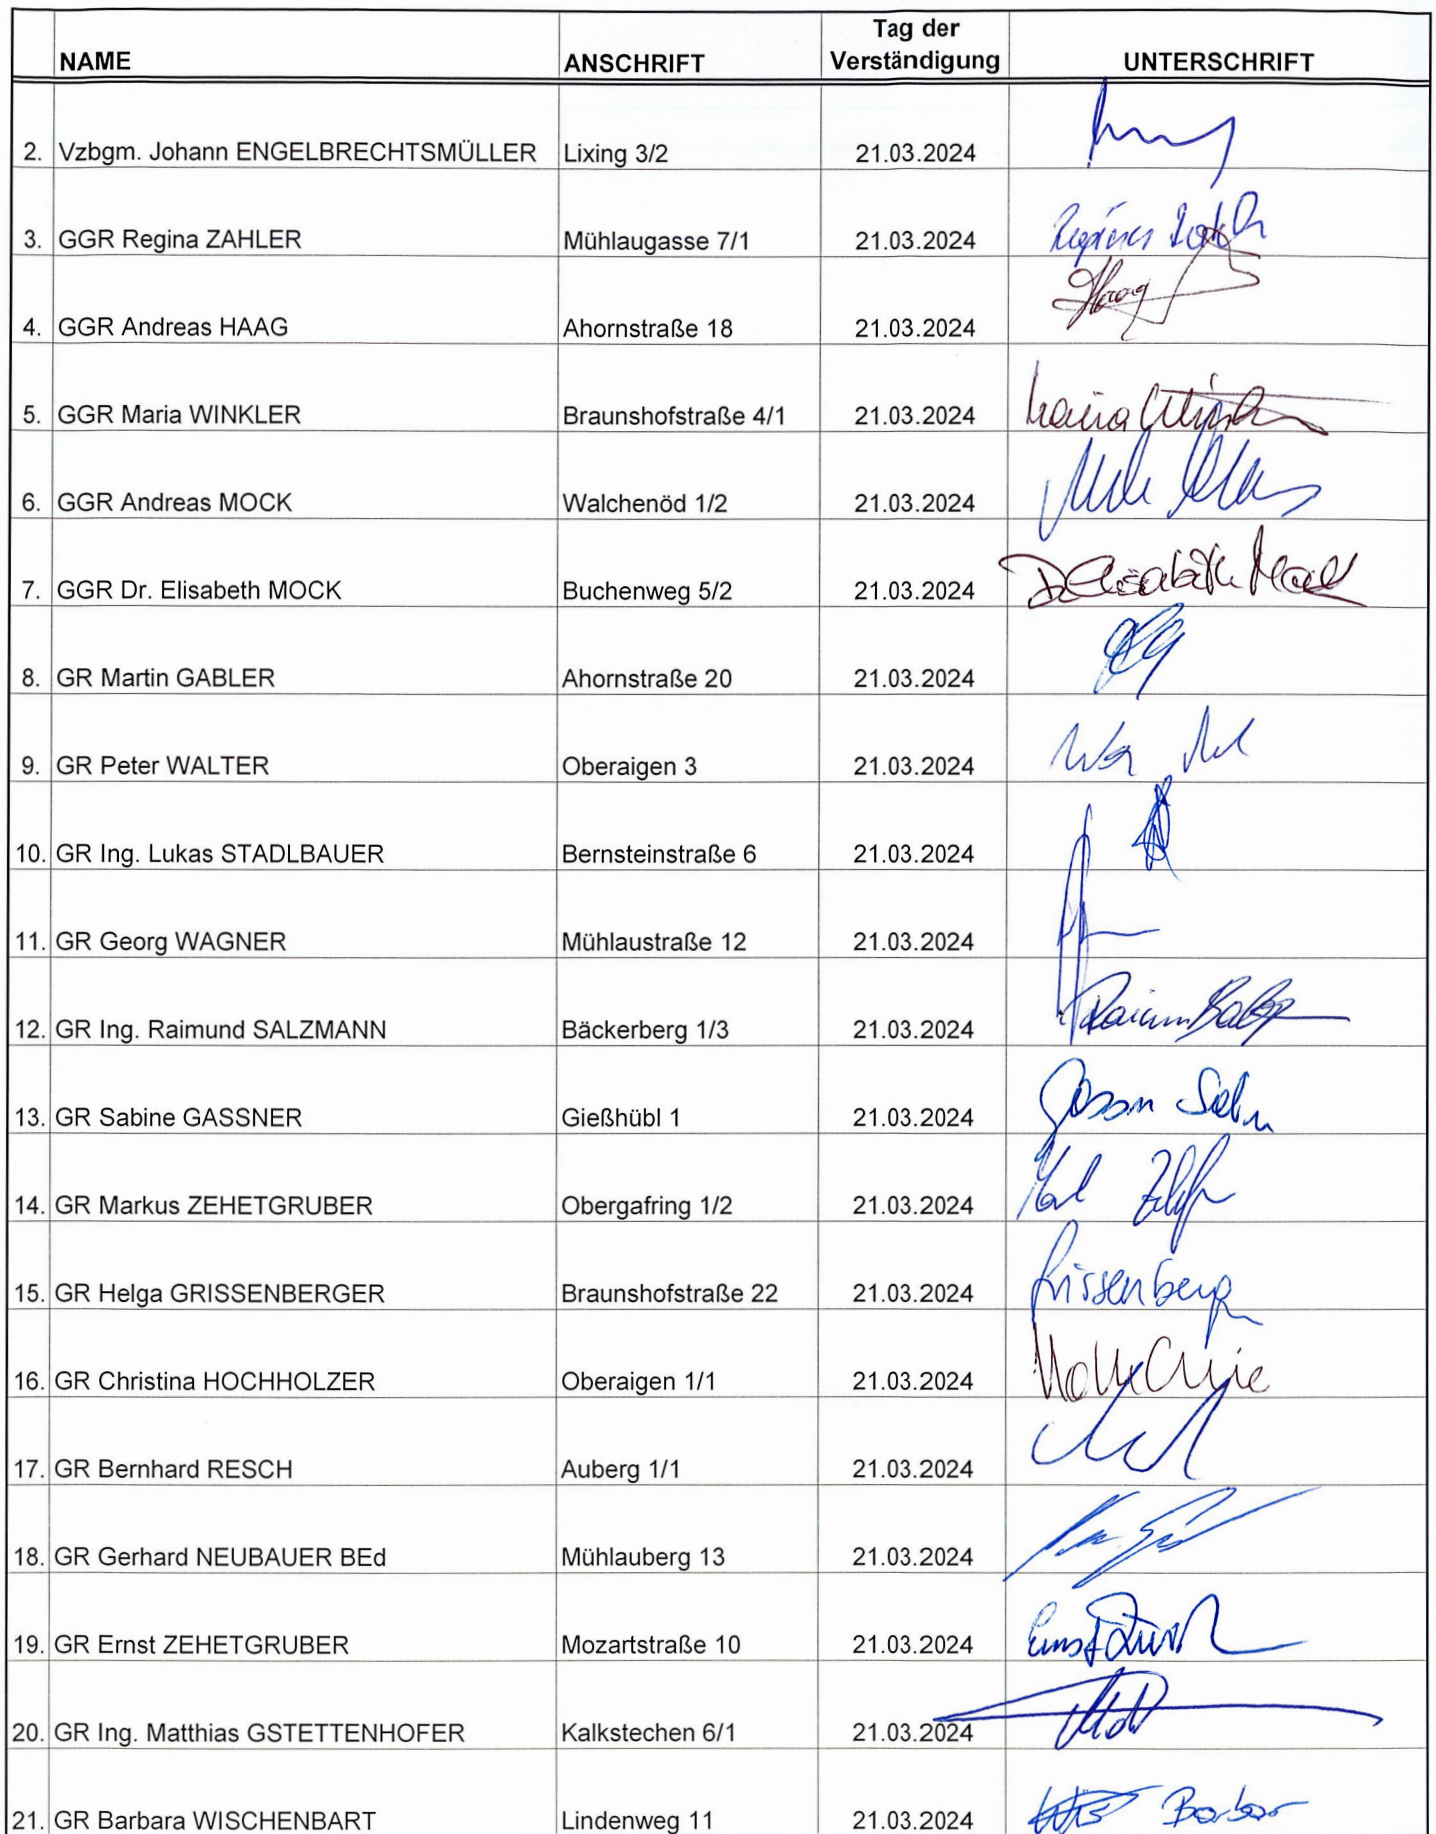 NAME ANSCHRIFT Tag der Verständigung UNTERSCHRIFT
2. Vzbgm. Johann ENGELBRECHTSMÜLLER Lixing 3/2 21.03.2024
3. GGR Regina ZAHLER Mühlaugasse 7/1 21.03.2024
4. GGR Andreas HAAG Ahornstraße 18 21.03.2024 Haag
5. GGR Maria WINKLER Braunshofstraße 4/1 21.03.2024 Maria
6. GGR Andreas MOCK Walchenöd 1/2 21.03.2024
7. GGR Dr. Elisabeth MOCK Buchenweg 5/2 21.03.2024 Dr. Elisabeth Mock
8. GR Martin GABLER Ahornstraße 20 21.03.2024
9. GR Peter WALTER Oberaigen 3 21.03.2024
10. GR Ing. Lukas STADLBAUER Bernsteinstraße 6 21.03.2024
11. GR Georg WAGNER Mühlaustraße 12 21.03.2024
12. GR Ing. Raimund SALZMANN Bäckerberg 1/3 21.03.2024
13. GR Sabine GASSNER Gießhübl 1 21.03.2024
14. GR Markus ZEHETGRUBER Obergafring 1/2 21.03.2024
15. GR Helga GRISSENBERGER Braunshofstraße 22 21.03.2024
16. GR Christina HOCHHOLZER Oberaigen 1/1 21.03.2024
17. GR Bernhard RESCH Auberg 1/1 21.03.2024
18. GR Gerhard NEUBAUER BEd Mühlauberg 13 21.03.2024
19. GR Ernst ZEHETGRUBER Mozartstraße 10 21.03.2024 Ernst
20. GR Ing. Matthias GSTETTENHOFER Kalkstechen 6/1 21.03.2024
21. GR Barbara WISCHENBART Lindenweg 11 21.03.2024